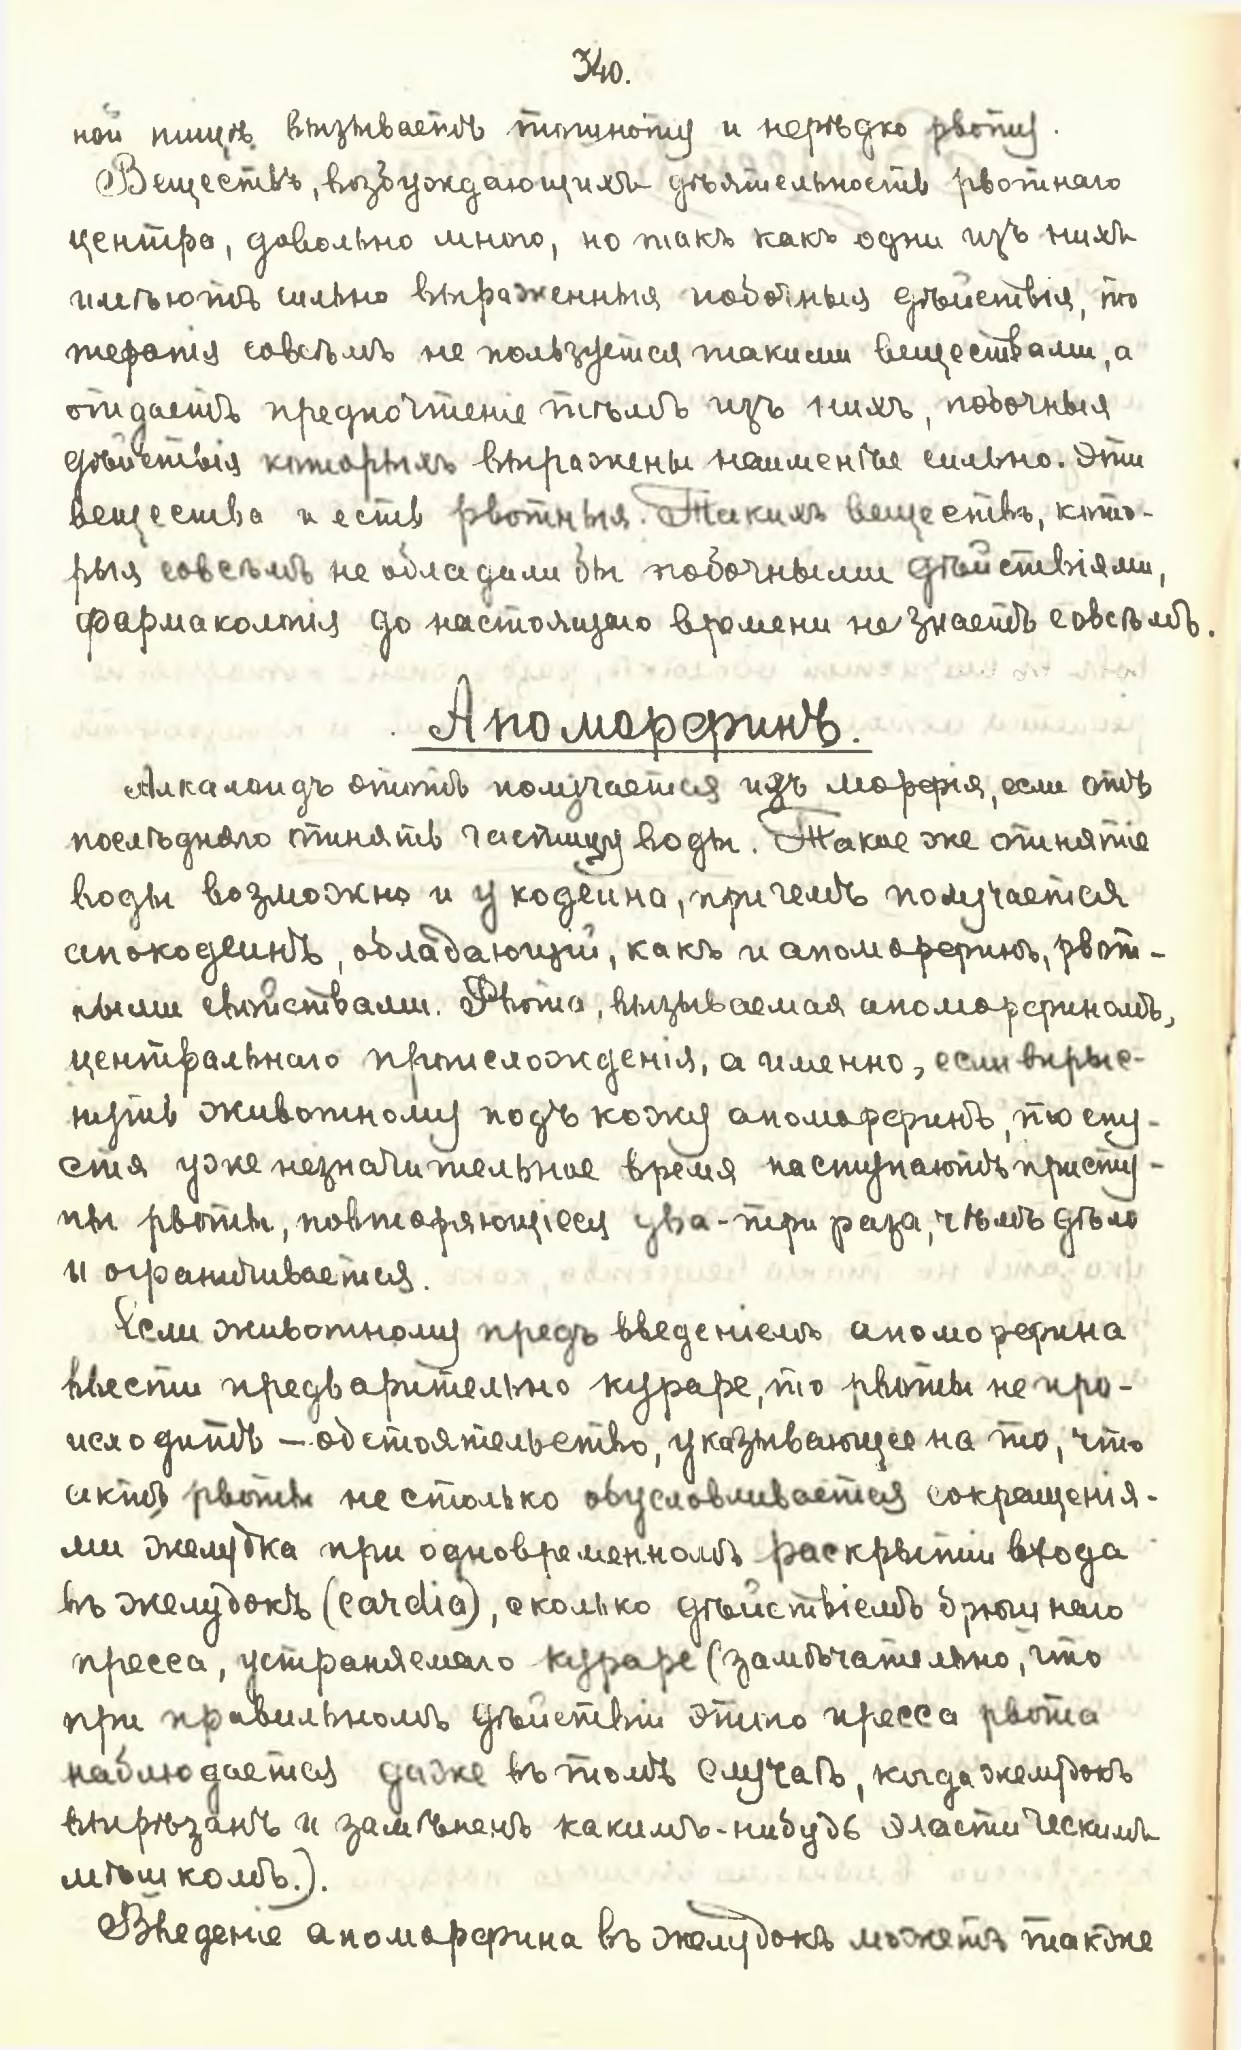 340.
ной пищѣ вызываетъ тошноту и нерѣдко рвоту.
Веществъ, возбуждающихъ дѣятельность рвотнаго
центра, довольно много, но такъ какъ одни изъ нихъ
имѣютъ сильно выраженныя побочныя дѣйствія, то
терапія совсѣмъ не пользуется такими веществами, а
отдаетъ предпочтеніе тѣмъ изъ нихъ, побочныя
дѣйствія которыхъ выражены наименѣе сильно. Эти
вещества и есть рвотныя. Такихъ веществъ, кото-
рыя совсѣмъ не обладали бы побочными дѣйствіями,
фармакологія до настоящаго времени не знаетъ совсѣмъ.
Апоморфинъ.
Алкалоидъ этотъ получается изъ морфія, если отъ
послѣдняго отнять частицу воды. Такое же отнятіе
воды возможно и у кодеина, при чемъ получается
апокодеинъ, обладающій, какъ и апоморфинъ, рвот-
ными свойствами. Рвота, вызываемая апоморфиномъ,
центральнаго происхожденія, а именно, если впрыс-
нуть животному подъ кожу апоморфинъ, то спу-
стя уже незначительное время наступаютъ присту-
пы рвоты, повторяющіеся два-три раза, чѣмъ дѣло
и ограничивается.
Если животному предъ введеніемъ апоморфина
ввести предварительно кураре, то рвоты не про-
исходитъ — обстоятельство, указывающее на то, что
актъ рвоты не столько обусловливается сокращенія-
ми желудка при одновременномъ раскрытіи входа
въ желудокъ (cardia), сколько дѣйствіемъ брюшнаго
пресса, устраняемаго кураре (замѣчательно, что
при правильномъ дѣйствіи этого пресса рвота
наблюдается даже въ томъ случаѣ, когда желудокъ
вырѣзанъ и замѣненъ какимъ-нибудь эластическимъ
мѣшкомъ.).
Введеніе апоморфина въ желудокъ можетъ также